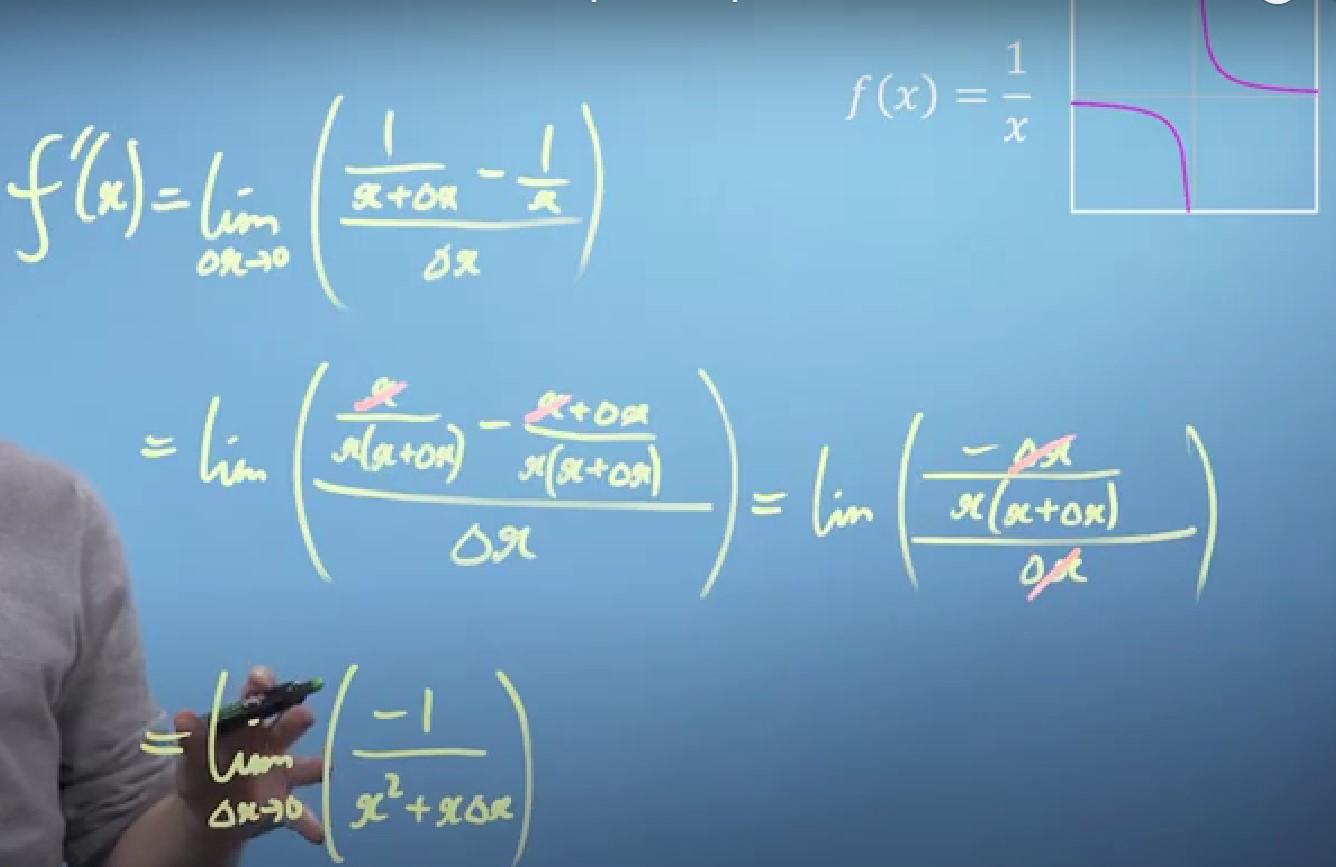 f(x) = 1/x
f'(x) = lim Δx→0 ( (1/(x+Δx) - 1/x) / Δx )
= lim ( (x/(x(x+Δx)) - (x+Δx)/(x(x+Δx))) / Δx ) = lim ( (-Δx/(x(x+Δx))) / Δx )
= lim Δx→0 ( -1/(x²+xΔx) )